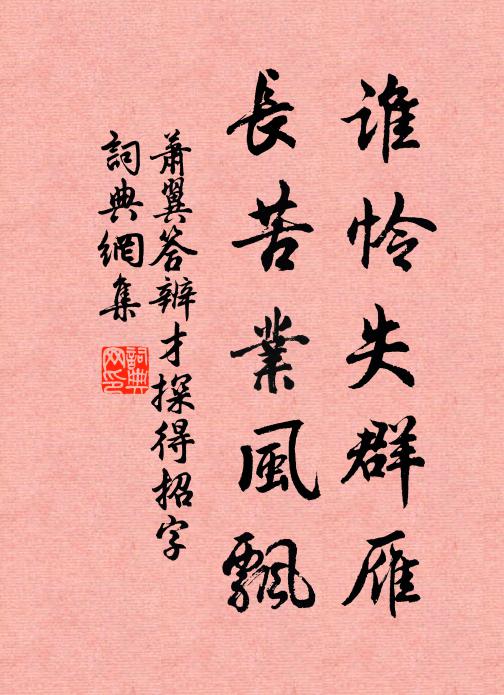 誰怜失群雁
長苦業風飄
蕭翼答辨才探得招字
詞典網集
詞典网印